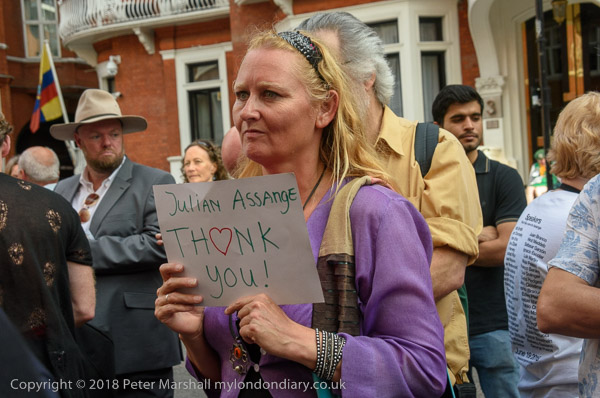 Julian Assange
TH♡NK
you!
Speakers
Copyright © 2018 Peter Marshall mylondondiary.co.uk